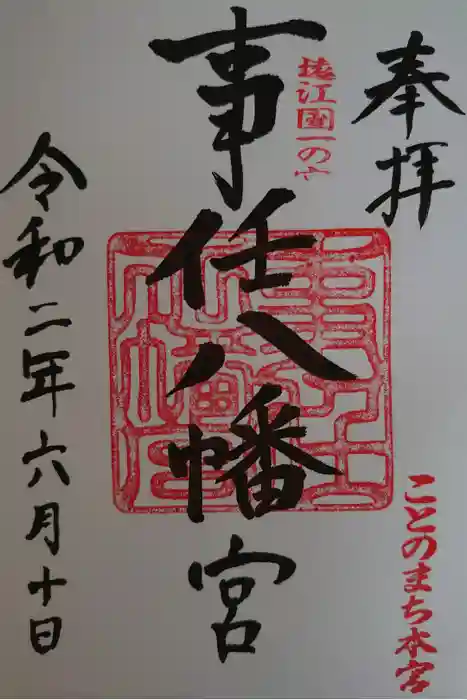 奉拝
遠江國一のみや
事任八幡宮
事任八幡宮
ことのまち本宮
令和二年六月十日